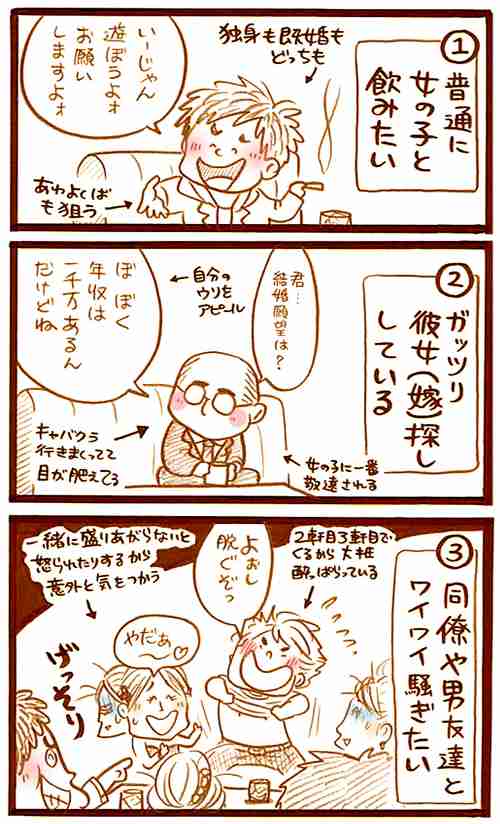 ①
普通に
女の子と
飲みたい
独身も既婚も
どっちも
いーじゃん
遊ぼうよォ
お願い
しますよォ
あわよくば
も狙う
②
ガッツリ
彼女(嫁)探し
している
君…
結婚願望は?
自分の
ウリを
アピール
ぼ ぼく
年収は
一千万あるん
だけどね
キャバクラ
行きまくってて
目が肥えてる
女の子に一番
敬遠される
③
同僚や男友達と
ワイワイ騒ぎたい
2軒目3軒目で
くるから大抵
酔っぱらっている
よぉし
脱ぐぞっ
一緒に盛りあがらないと
怒られたりするから
意外と気をつかう
やだぁ
〜♡
げっそり